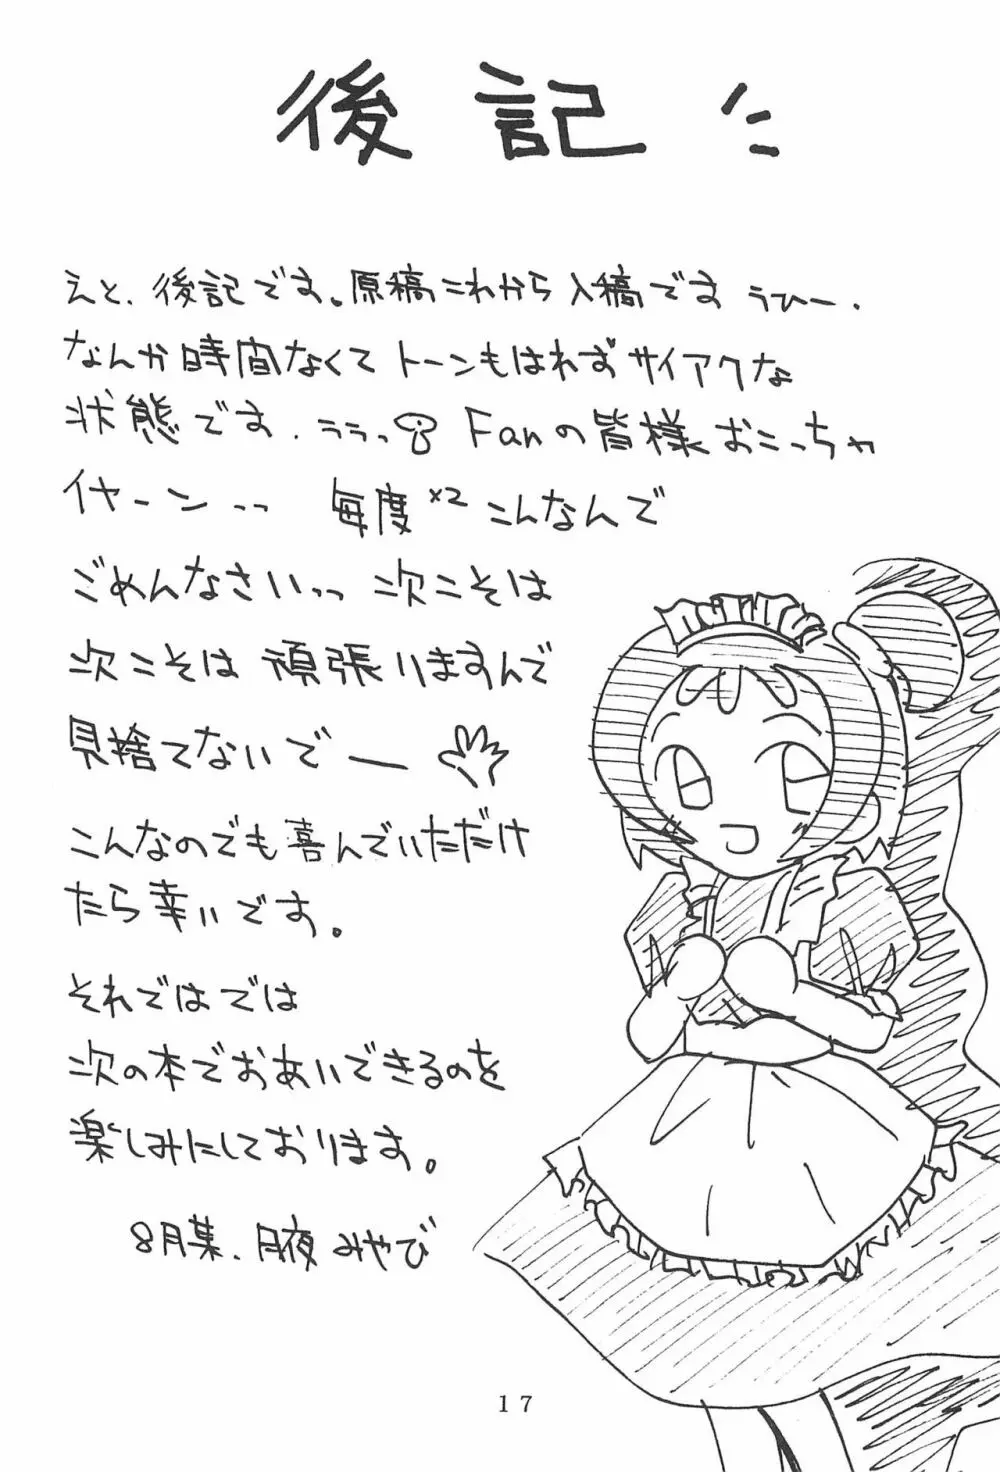 後記
えと、後記です。原稿これから入稿です うひー.
なんか時間なくて トーンもはれず サイアクな
状態です. ララっ Fanの皆様 おこっちゃ
イヤーンっっ 毎度×2 こんなんで
ごめんなさいっっ 次こそは
次こそは 頑張いますんで
見捨てないでー
こんなのでも喜んでいただけ
たら幸いです。
それではでは
次の本でおあいできるのを
楽しみにしております。
8月某. 月夜 みやび
17